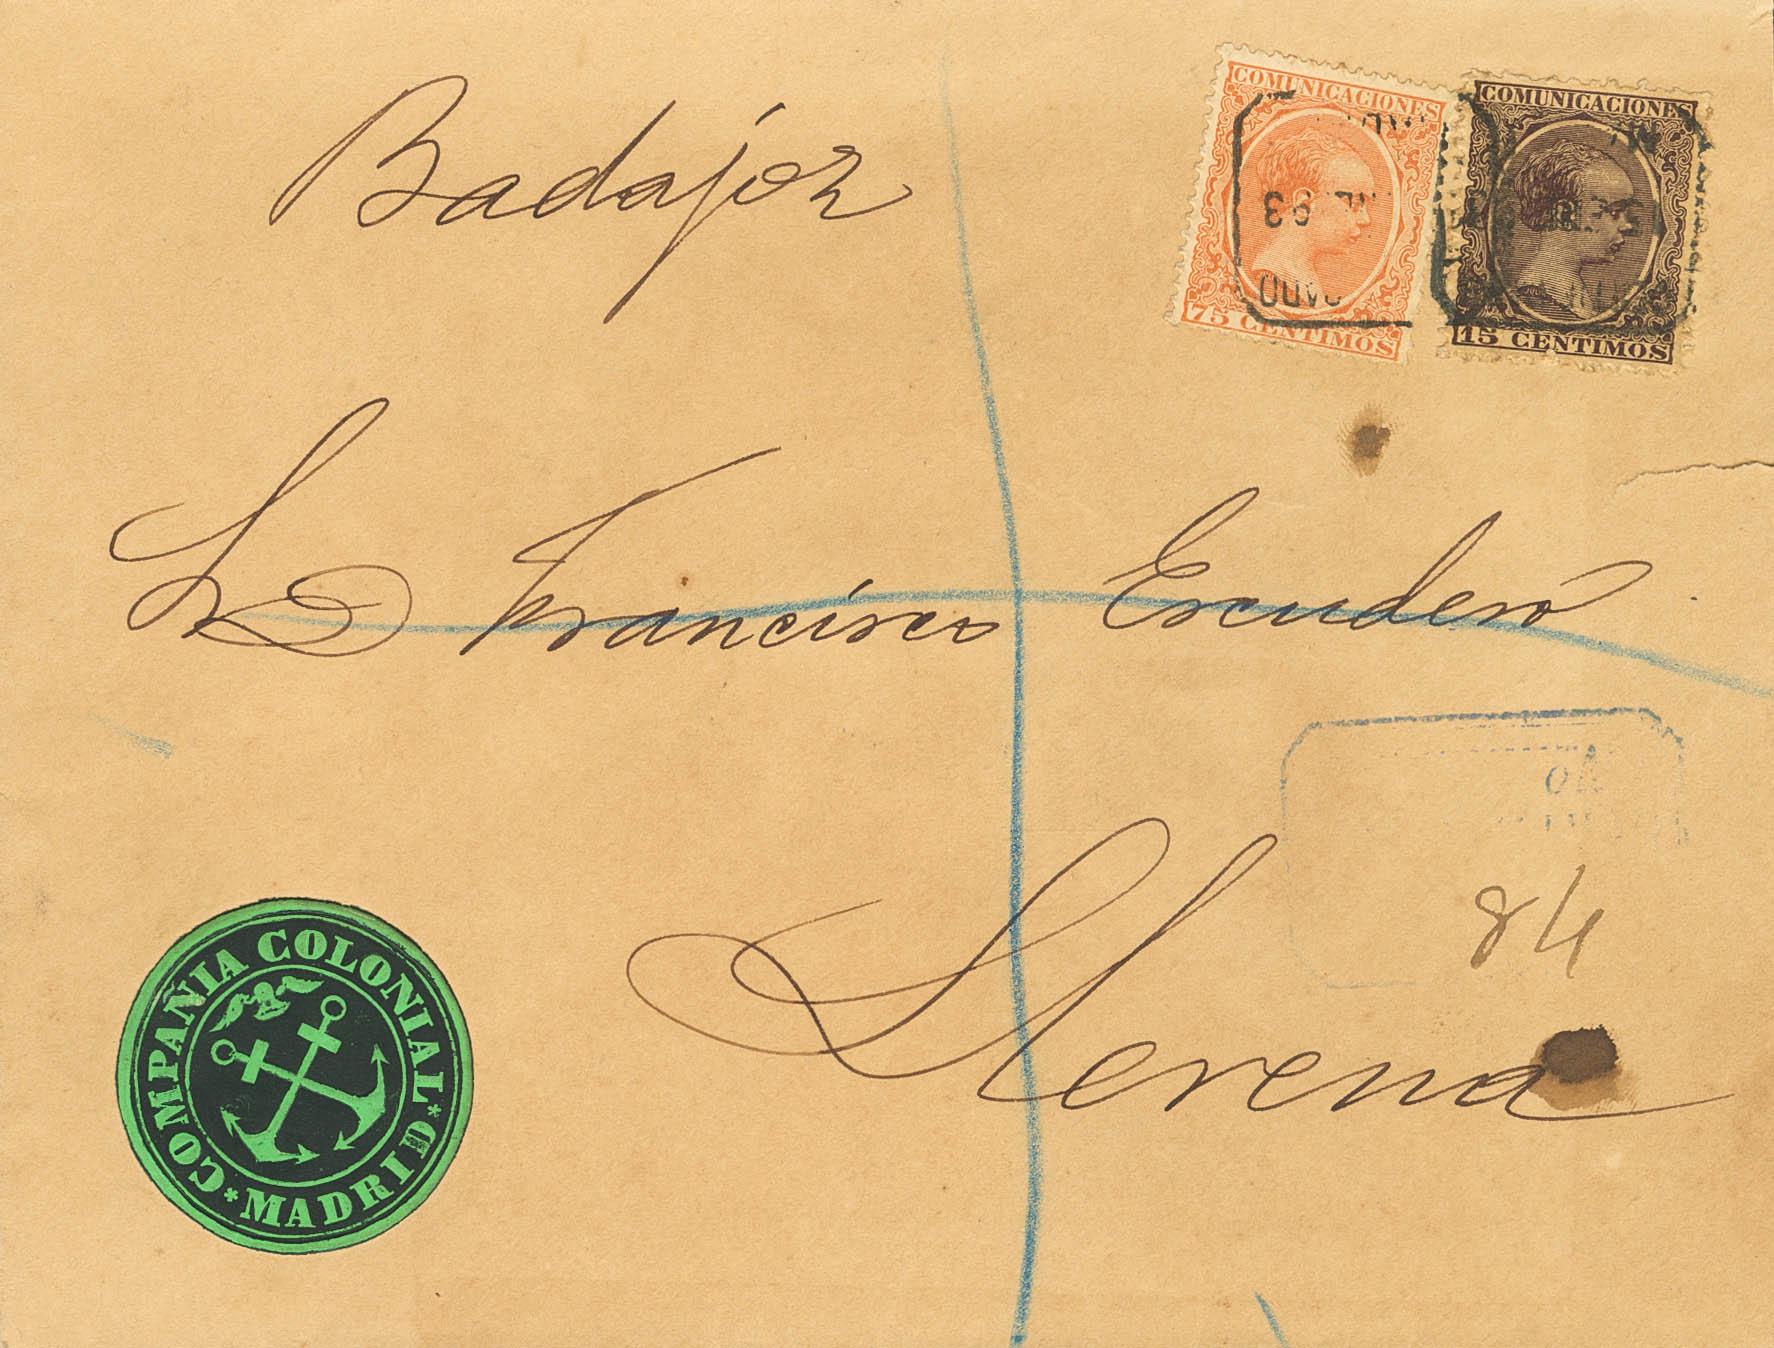 Badajoz
COMUNICACIONES
75 CENTIMOS
COMUNICACIONES
15 CENTIMOS
Sr Dn Francisco Escudero
84
Llerena
COMPAÑIA COLONIAL * MADRID *